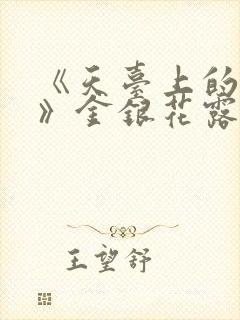 《天臺上的
》金銀花露
王望舒